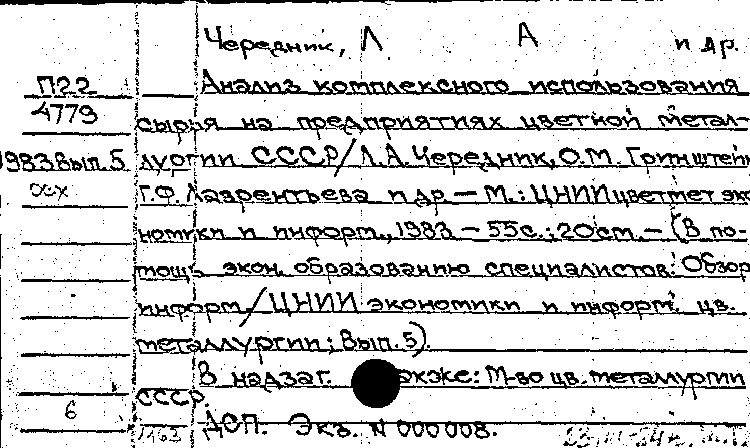 Чередник, Л А и др.
П22 Анализ комплексного использования
4779 сырья на предприятиях цветной метал-
1983 вып. 5 лургии СССР/Л.А. Чередник, О.М. Гринштейн
Г.Ф. Лаврентьева и др. — М.: ЦНИИцветмет эко
номики и информ., 1983 — 55с.; 20см. — (В по-
мощь экон. образованию специалистов: Обзор
информ./ЦНИИ экономики и информ. цв.
металлургии; Вып. 5).
В надзаг. также: М-во цв. металлургии
СССР.
6 1463 ДСП. Экз. N 000008.